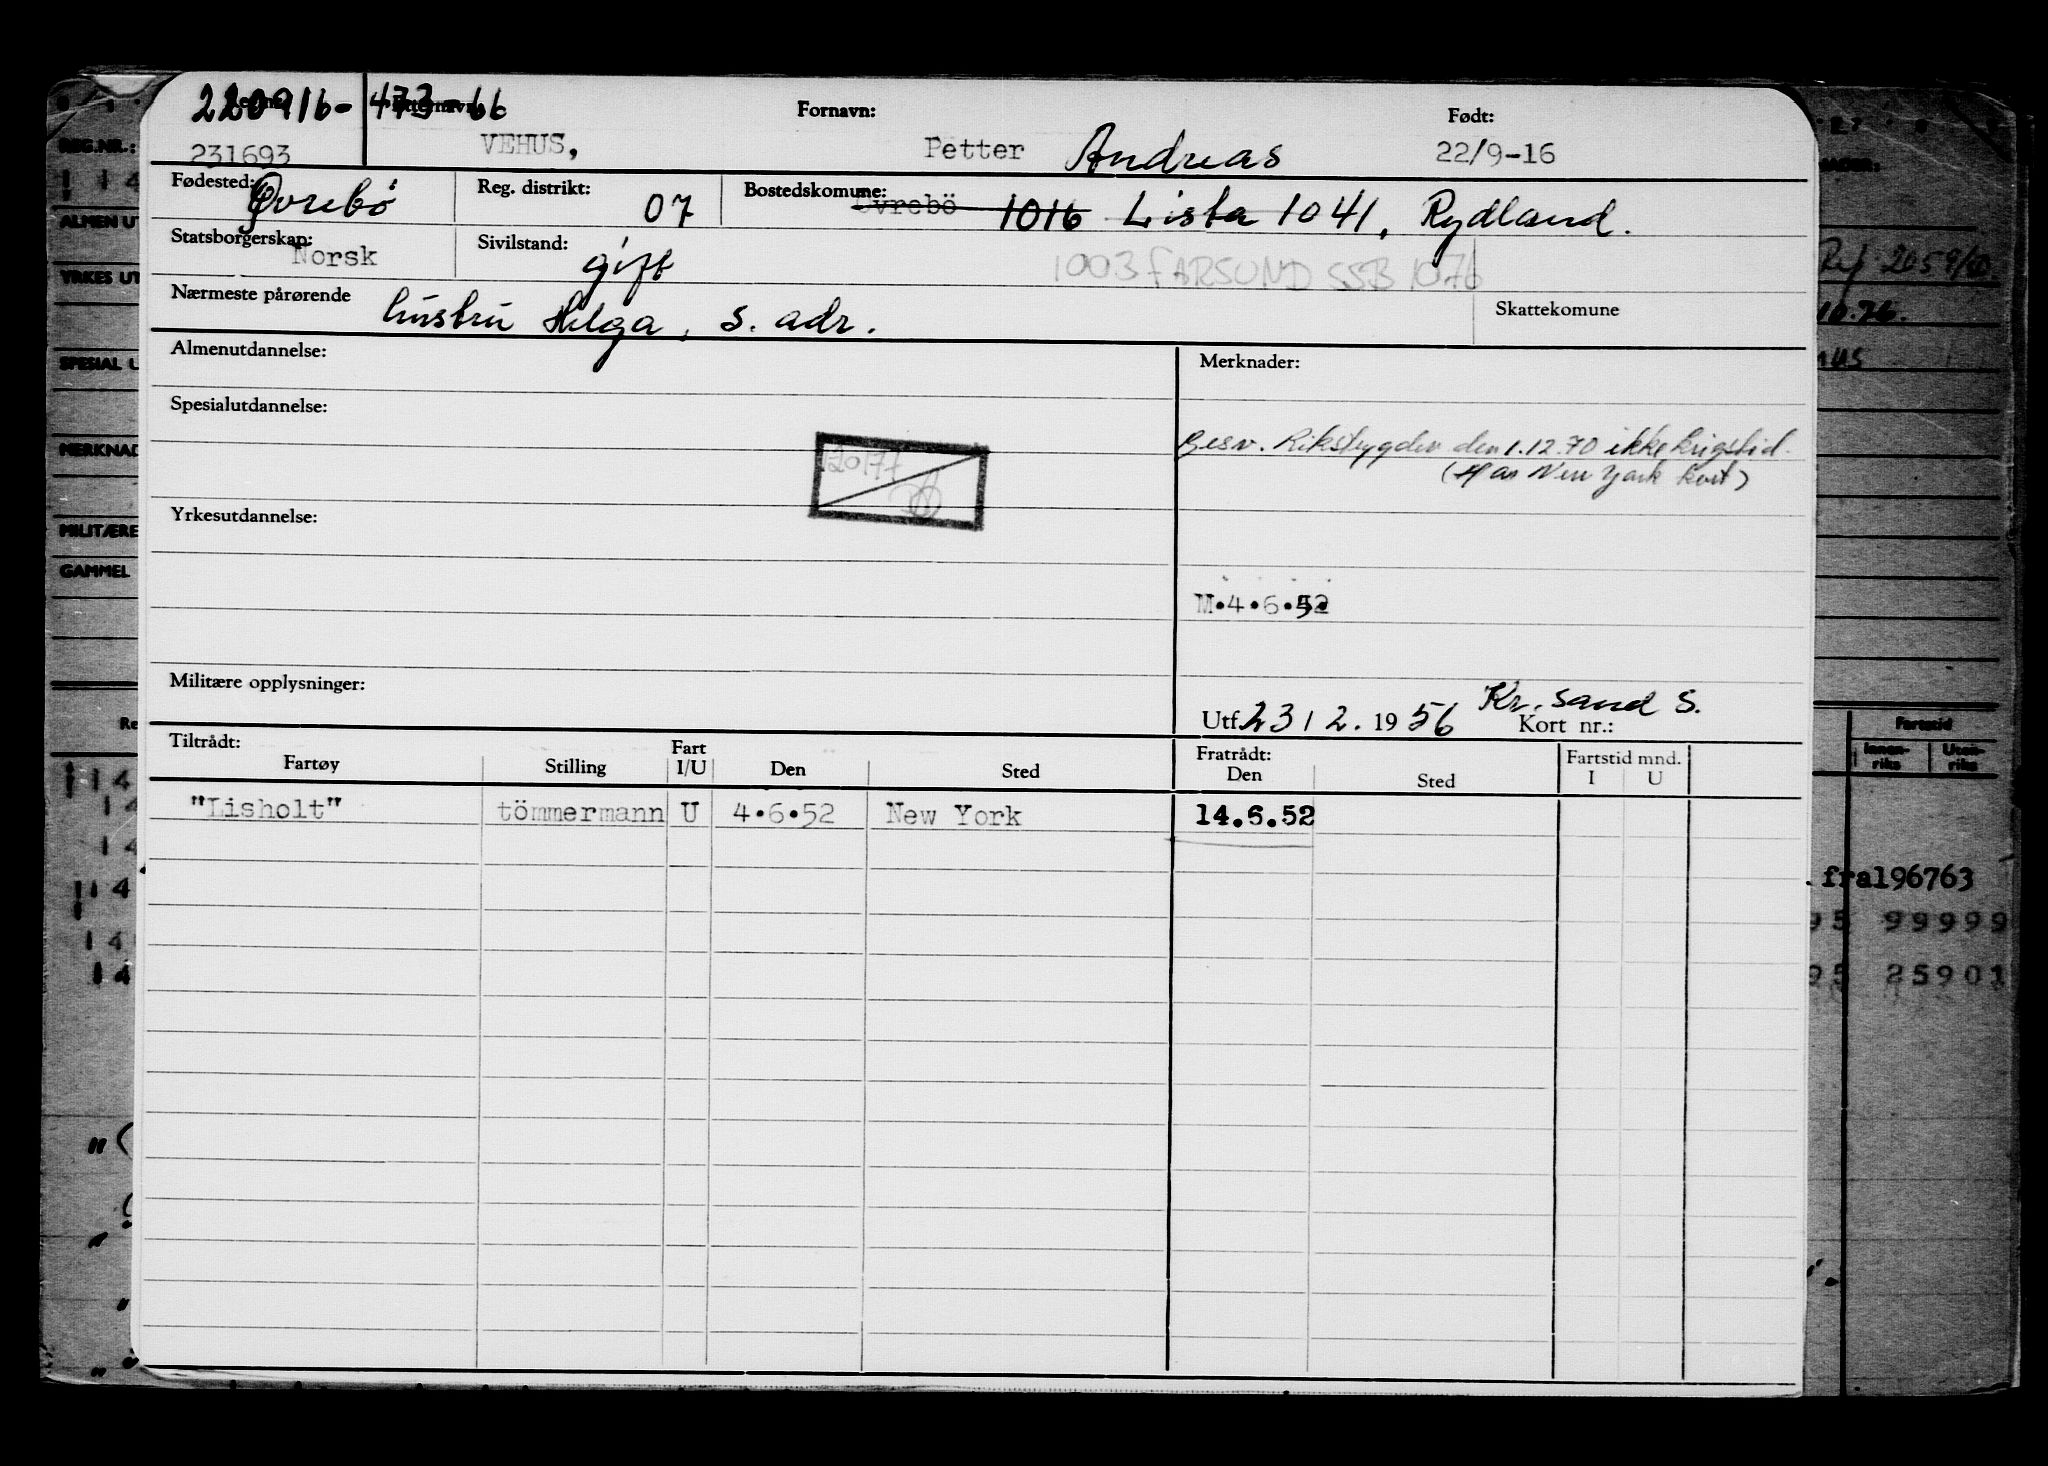 220916- 473-66
Fornavn: Født:
231693 VEHUS, Petter Andreas 22/9-16
Fødested: Øvrebö Reg. distrikt: 07 Bostedskomune: Øvrebö 1016 Lista 1041, Rydland.
Statsborgerskap: Norsk Sivilstand: gift 1003 FARSUND SSB 1076
Nærmeste pårørende hustru Helga, s. adr. Skattekomune
Almenutdannelse: Merknader:
Spesialutdannelse:
Besv. Rikstrygden den 1.12.70 ikke krigstid.
(Har New York kort)
120177
Yrkesutdannelse:
M.4.6.52
Militære opplysninger:
Utf. 23/2. 1956 Kr.sand S. Kort nr.:
Tiltrådt: Fratrådt: Fartstid mnd.
Fartøy Stilling Fart I/U Den Sted Den Sted I U
"Lisholt" tömmermann U 4.6.52 New York 14.6.52
REG.NR.:
ALMEN UT
YRKES UT
SPESIAL U
MERKNAD
MILITÆRE
GAMMEL
10.76.
Fartstid
Innen-riks Uten-riks
fra196763
95 99999
95 25901